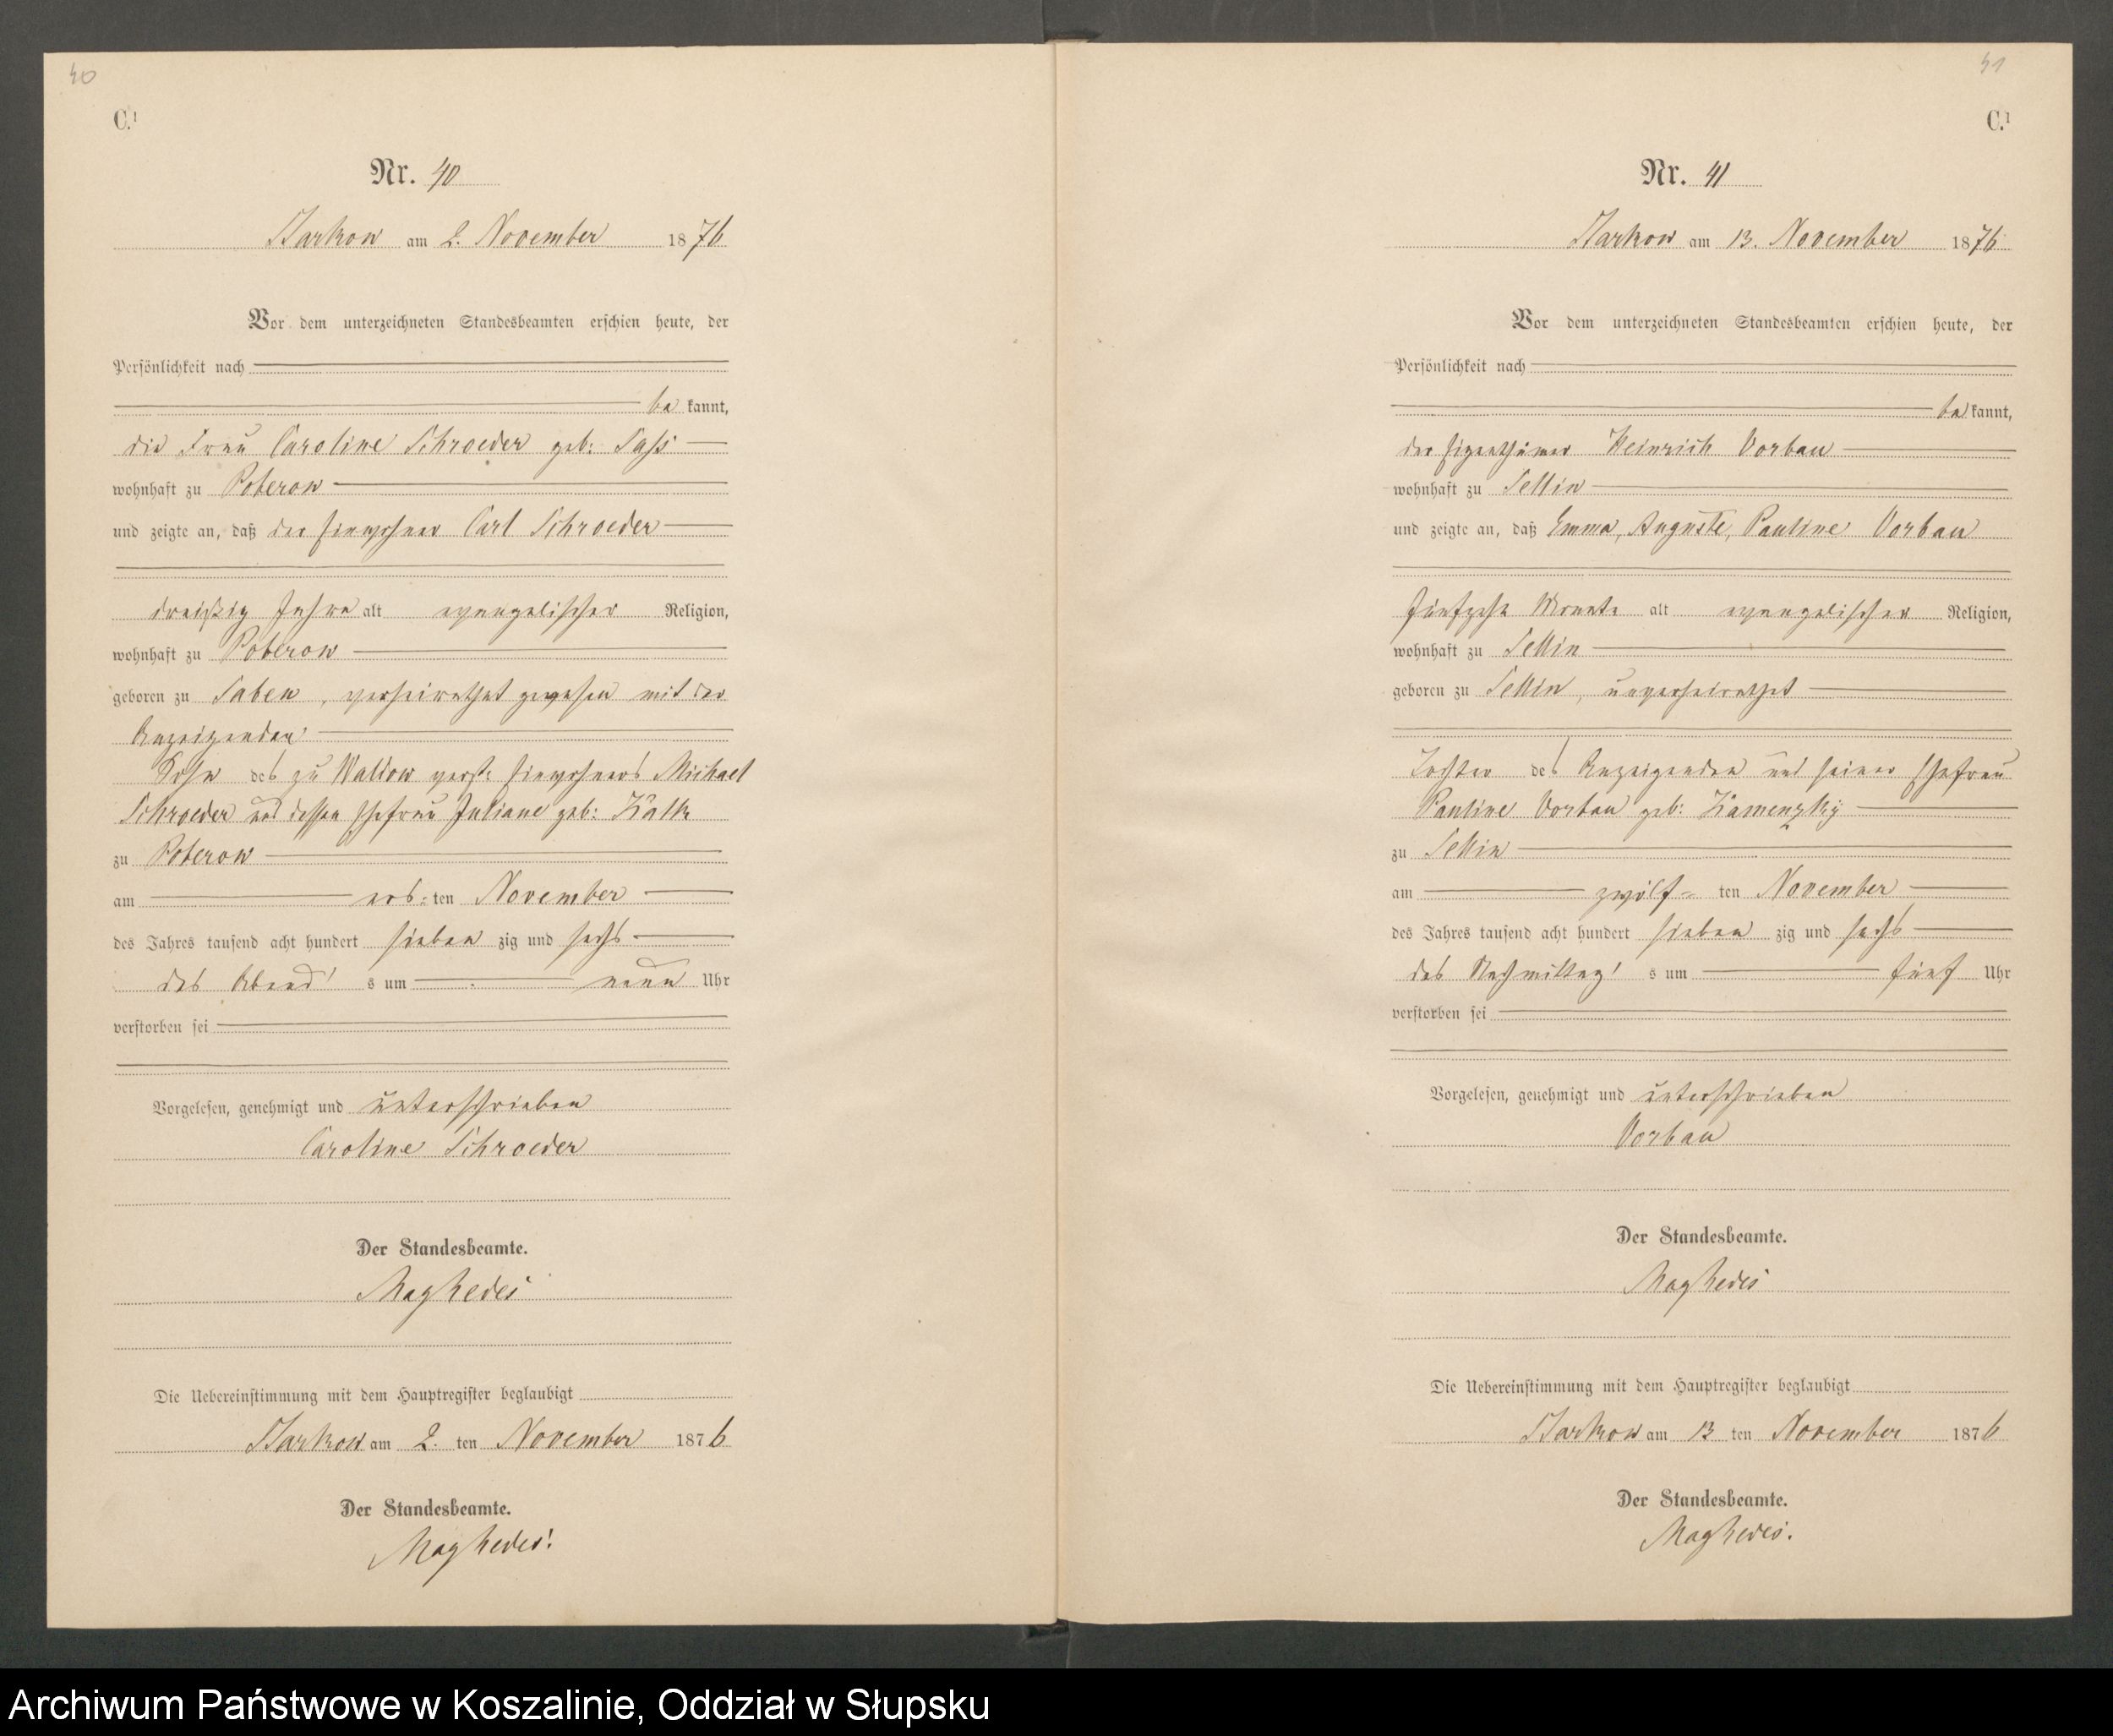 40
C.¹
Nr. 40
Barkow am 2. November 1876
Vor dem unterzeichneten Standesbeamten erschien heute, der
Persönlichkeit nach
be kannt,
die Frau Caroline Schroeder geb: Sass
wohnhaft zu Poberow
und zeigte an, daß der Einwohner Carl Schroeder
dreißig Jahre alt evangelischer Religion,
wohnhaft zu Poberow
geboren zu Saben, verheirathet gewesen mit der
Anzeigenden
Sohn des zu Waldow verst: Einwohners Michael
Schroeder und dessen Ehefrau Juliane geb:
zu Poberow
am ers- ten November
des Jahres tausend acht hundert sieben zig und sechs
des Abend' s um neun Uhr
verstorben sei
Vorgelesen, genehmigt und unterschrieben
Caroline Schroeder
Der Standesbeamte.
Der Standesbeamte.
Die Uebereinstimmung mit dem Hauptregister beglaubigt
Barkow am 2. ten November 1876
41
C.¹
Nr. 41
Barkow am 13. November 1876
Vor dem unterzeichneten Standesbeamten erschien heute, der
Persönlichkeit nach
be kannt,
der Eigenthümer Heinrich Vorbau
wohnhaft zu Sellin
und zeigte an, daß Emma, Auguste, Pauline Vorbau
fünfzehn Monate alt evangelischer Religion,
wohnhaft zu Sellin
geboren zu Sellin, unverheirathet
Tochter des Anzeigenden und seiner Ehefrau
Pauline Vorbau geb: Kamenzky
zu Sellin
am zwölf- ten November
des Jahres tausend acht hundert sieben zig und sechs
des Nachmittag' s um fünf Uhr
verstorben sei
Vorgelesen, genehmigt und unterschrieben
Vorbau
Der Standesbeamte.
Die Uebereinstimmung mit dem Hauptregister beglaubigt
Barkow am 13 ten November 1876
Der Standesbeamte.
Archiwum Państwowe w Koszalinie, Oddział w Słupsku